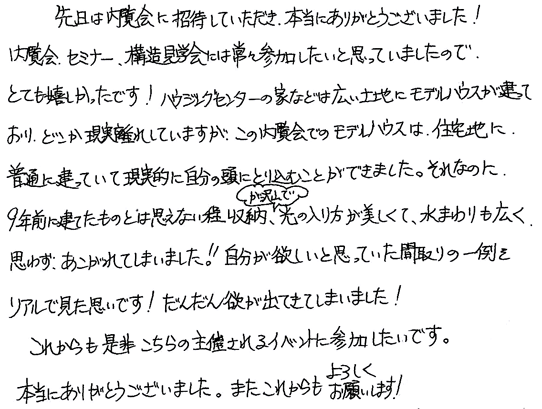 先日は内覧会に招待していただき、本当にありがとうございました！
内覧会、セミナー、構造見学会には常々参加したいと思っていましたので、
とても嬉しかったです！ハウジングセンターの家などは広い土地にモデルハウスが建って
おり、どこか現実離れしていますが、この内覧会でのモデルハウスは、住宅地に、
普通に建っていて現実的に自分の頭にとり込むことができました。それなのに、
9年前に建てたものとは思えない程収納が沢山で、光の入り方が美しくて、水まわりも広く、
思わず、あこがれてしまいました!! 自分が欲しいと思っていた間取りの一例を
リアルで見た思いです！だんだん欲が出てきてしまいました！
これからも是非こちらの主催されるイベントに参加したいです。
本当にありがとうございました。またこれからもよろしくお願いします！